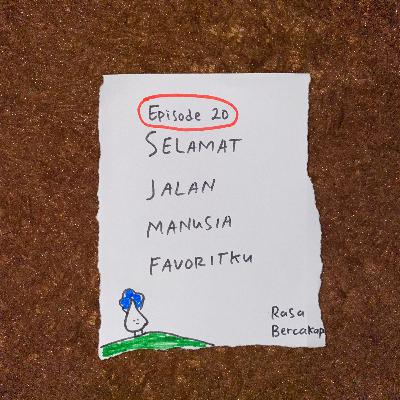 Episode 20
SELAMAT
JALAN
MANUSIA
FAVORITKU
Rasa
Bercakap